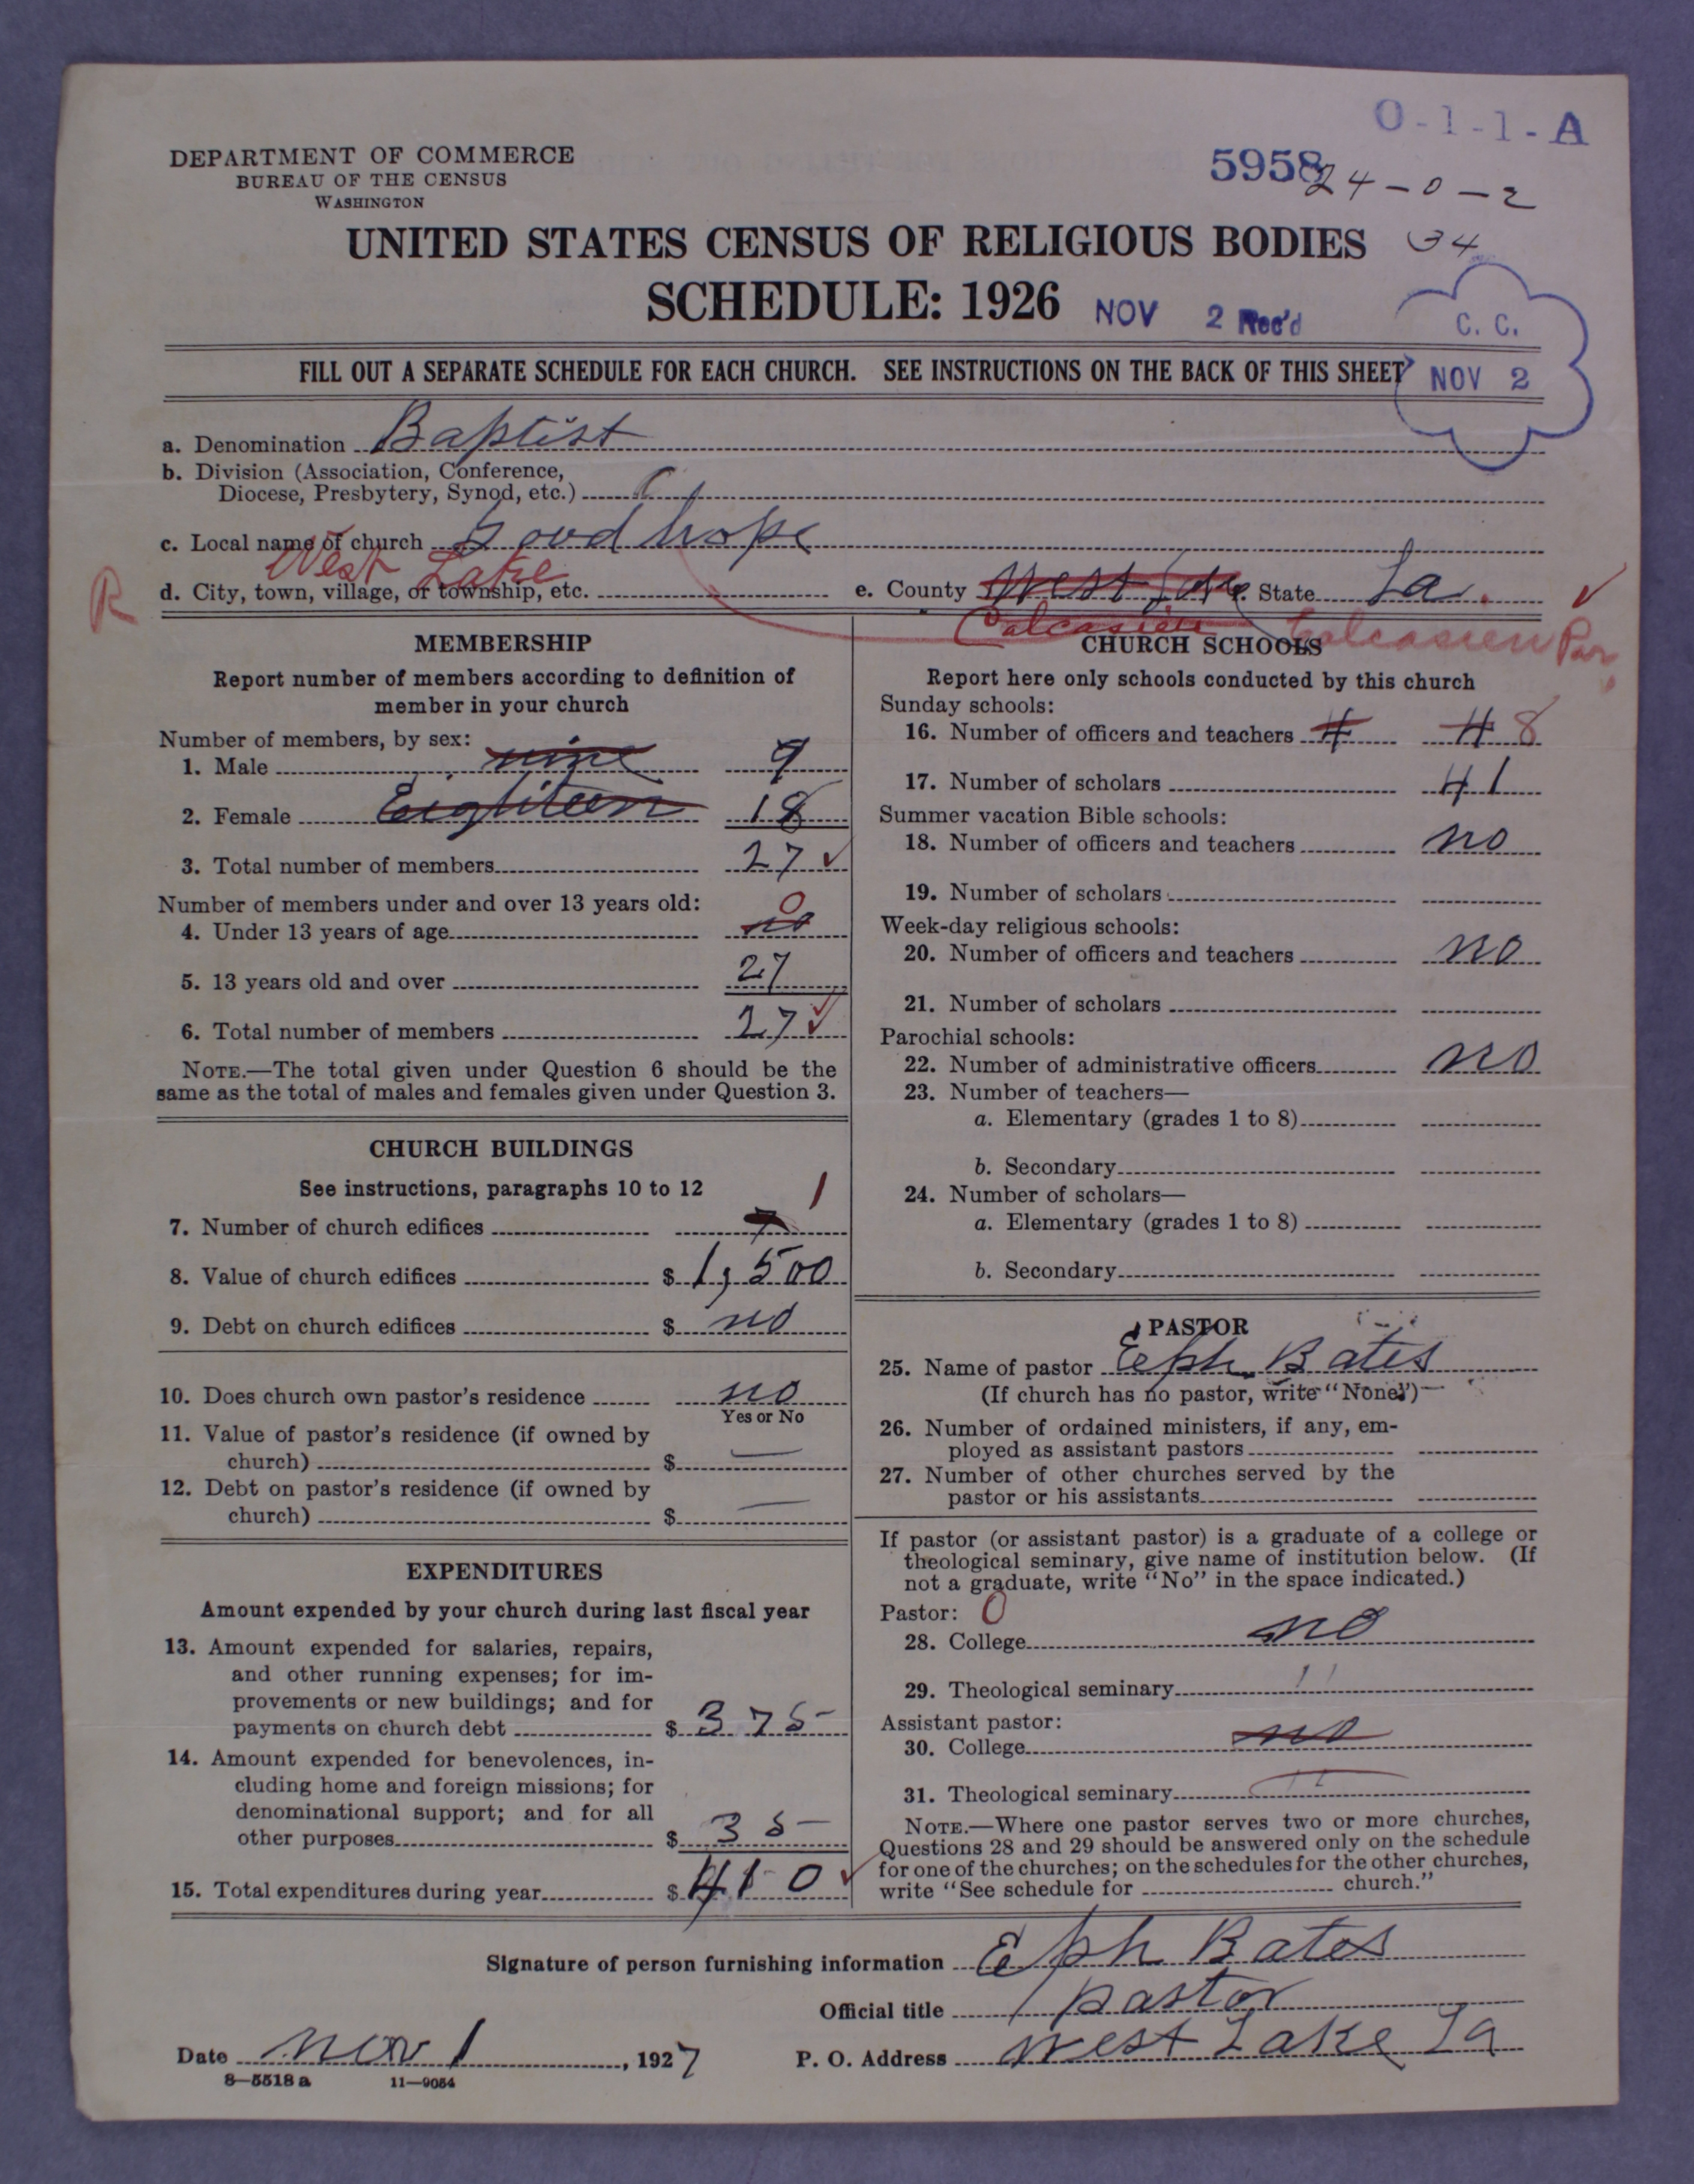 0-1-1-A
DEPARTMENT OF COMMERCE
BUREAU OF THE CENSUS
WASHINGTON
5958
24-0-2
UNITED STATES CENSUS OF RELIGIOUS BODIES
34
SCHEDULE: 1926
NOV 2 Rec'd
C. C.
NOV 2
FILL OUT A SEPARATE SCHEDULE FOR EACH CHURCH. SEE INSTRUCTIONS ON THE BACK OF THIS SHEET
a. Denomination Baptist
b. Division (Association, Conference,
Diocese, Presbytery, Synod, etc.)
c. Local name of church Good hope
R d. City, town, village, or township, etc. West Lake e. County West Lake f. State La.
Calcasieu Calcasieu Par
MEMBERSHIP
Report number of members according to definition of
member in your church
Number of members, by sex:
1. Male nine 9
2. Female Eighteen 18
3. Total number of members 27
Number of members under and over 13 years old:
4. Under 13 years of age no 0
5. 13 years old and over 27
6. Total number of members 27
NOTE.—The total given under Question 6 should be the
same as the total of males and females given under Question 3.
CHURCH BUILDINGS
See instructions, paragraphs 10 to 12
7. Number of church edifices 1
8. Value of church edifices $ 1,500
9. Debt on church edifices $ no
10. Does church own pastor's residence no
Yes or No
11. Value of pastor's residence (if owned by
church) $ —
12. Debt on pastor's residence (if owned by
church) $ —
EXPENDITURES
Amount expended by your church during last fiscal year
13. Amount expended for salaries, repairs,
and other running expenses; for im-
provements or new buildings; and for
payments on church debt $ 375
14. Amount expended for benevolences, in-
cluding home and foreign missions; for
denominational support; and for all
other purposes $ 35
15. Total expenditures during year $ 410
CHURCH SCHOOLS
Report here only schools conducted by this church
Sunday schools:
16. Number of officers and teachers 8
17. Number of scholars 41
Summer vacation Bible schools:
18. Number of officers and teachers no
19. Number of scholars
Week-day religious schools:
20. Number of officers and teachers no
21. Number of scholars
Parochial schools:
22. Number of administrative officers no
23. Number of teachers—
a. Elementary (grades 1 to 8)
b. Secondary
24. Number of scholars—
a. Elementary (grades 1 to 8)
b. Secondary
PASTOR
25. Name of pastor Eph Bates
(If church has no pastor, write "None")
26. Number of ordained ministers, if any, em-
ployed as assistant pastors
27. Number of other churches served by the
pastor or his assistants
If pastor (or assistant pastor) is a graduate of a college or
theological seminary, give name of institution below. (If
not a graduate, write "No" in the space indicated.)
Pastor: 0
28. College no
29. Theological seminary "
Assistant pastor:
30. College no
31. Theological seminary "
NOTE.—Where one pastor serves two or more churches,
Questions 28 and 29 should be answered only on the schedule
for one of the churches; on the schedules for the other churches,
write "See schedule for church."
Signature of person furnishing information Eph Bates
Official title pastor
Date Nov 1, 1927 P. O. Address West Lake La
8—5518 a 11—9054